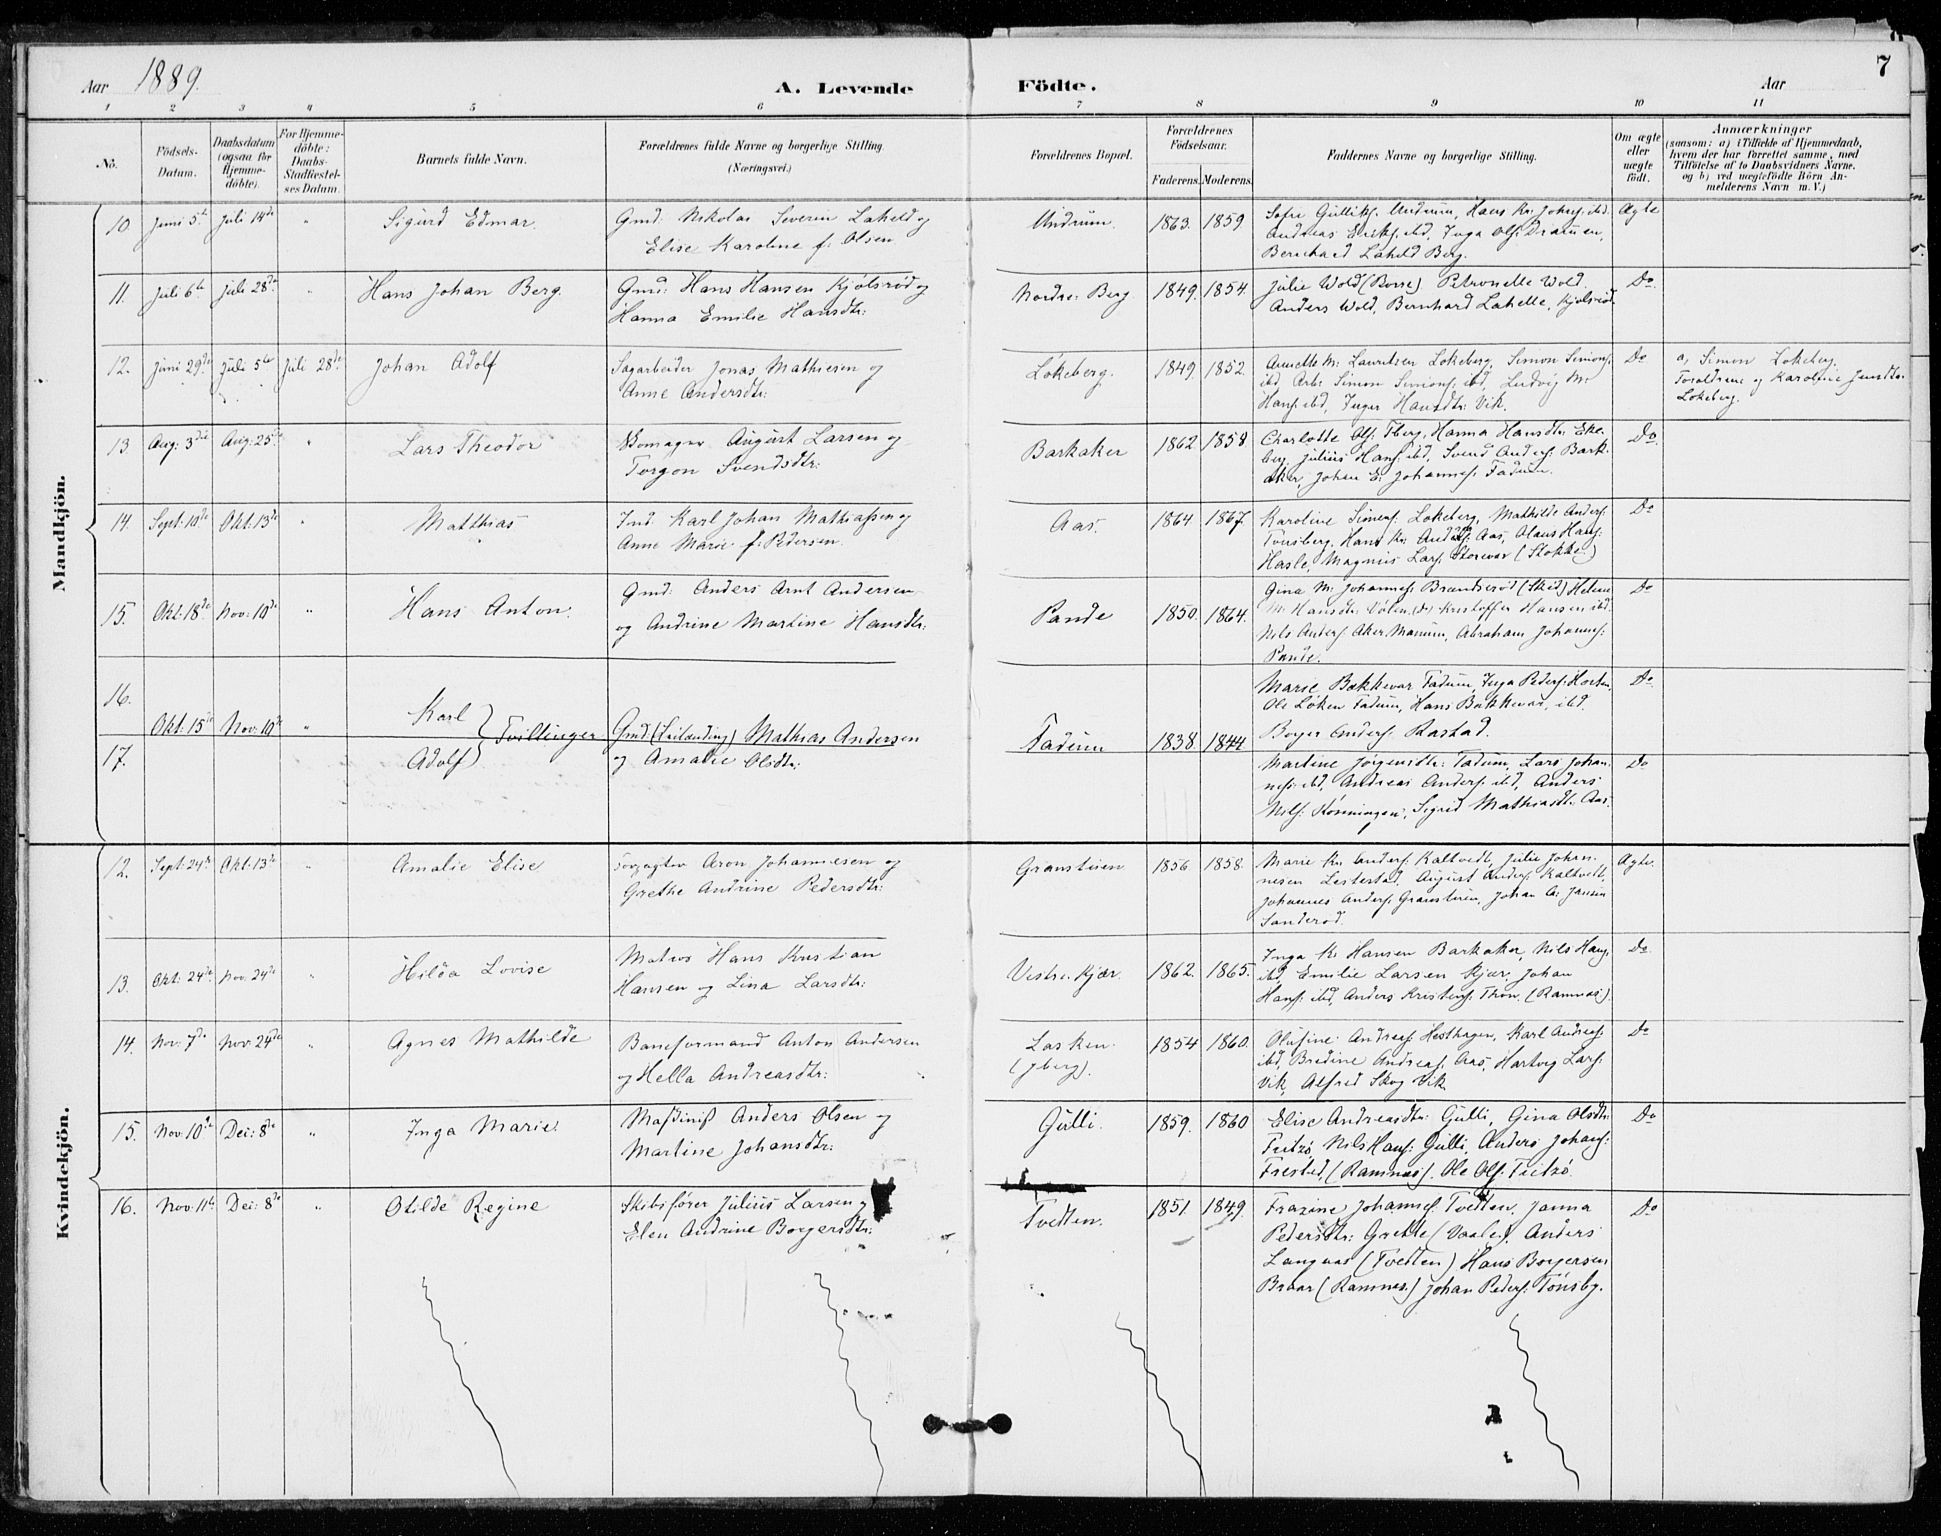 7
Aar 1889.
A. Levende
Födte.
Aar
1 2 3 4 5 6 7 8 9 10 11
No.
Födsels-
Datum.
Daabsdatum
(ogsaa for
Hjemme-
döbte).
For Hjemme-
döbte:
Daabs-
Stadfæstel-
ses Datum.
Barnets fulde Navn.
Forældrenes fulde Navne og borgerlige Stilling.
(Næringsvei.)
Forældrenes Bopæl.
Forældrenes
Födselsaar.
Faderens. Moderens.
Faddernes Navne og borgerlige Stilling.
Om ægte
eller
uægte
födt.
Anmærkninger
(saasom: a) i Tilfælde af Hjemmedaab,
hvem der har forrettet samme, med
Tilföielse af to Daabsvidners Navne.
og b) ved uægtefödte Börn An-
melderens Navn m. V.)
Mandkjön.
10. Juni 5te Juli 14de " Sigurd Edmar. Gmd: Nikolai Severin Laheld og
Elise Karoline f. Olsen
Undrum. 1863. 1859
Sofie Gulliks: Undrum, Hans Kr. Johns: ibd.
Andreas Eriks: ibd, Inga Ols: Drammen,
Bernhard Laheld Berg.
Ægte
11. Juli 6te Juli 28de " Hans Johan Berg. Gmd: Hans Hansen Kjølsrød og
Hanna Emilie Hansdtr:
Nordre Berg 1849. 1854.
Julie Wold (Borre) Petronelle Wold.
Anders Wold, Bernhard Lahelle, Kjølsrød.
Do
12. Juni 29de Juli 5te Juli 28de Johan Adolf Sagarbeider Jonas Mathiesen og
Anne Andersdtr:
Løkeberg. 1849. 1852.
Annette M: Lauritzen Løkeberg, Simon Simons:
ibd, Arb: Simon Simons: ibd, Ludvig M:
Hans: ibd, Inger Hansdtr: Vik.
Do
a, Simon Løkeberg
Forældrene og Karoline
Løkeberg.
13. Aug: 3die Aug: 25de " Lars Theodor Skomager August Larsen og
Torgon Svendsdtr:
Barkaker 1862 1858
Charlotte Ols: Iberg, Hanna Hansdtr: Eke-
berg, Julius Hans: ibd, Svend Anders: Bark-
aker, Johan E. Johannes: Fadum.
Do
14. Sept: 10de Okt: 13de " Matthias Ind: Karl Johan Mathiassen og
Anne Marie f: Pedersen.
Aas. 1864 1867.
Karoline Simens: Løkeberg, Mathilde Anders:
Tønsberg, Hans Kr. Anders: Aas, Olaus Hans:
Hasle, Magnus Lars: Storevar (Stokke)
Do
15. Okt: 18de Nov: 10de " Hans Anton. Gmd: Anders Arnt Andersen
og Andrine Martine Hansdtr:
Pande 1850. 1864.
Gina M: Johannes: Brandsrød (Sked) Helene
M: Hansdtr: Vølen (do) Kristoffer Hansen ibd.
Nils Anders: Aker Manum, Abraham Johannes:
Pande.
Do
16. Okt: 15de Nov: 10de " Karl
17. Adolf
Tvillinger
Gmd: Mathias Andersen
og Amalie Olsdtr:
Fadum 1838 1844
Marie Bækkevar Fadum, Inga Peders: Horten,
Ole Løken Fadum, Hans Bækkevar, ibd.
Borger Anders: Rastad.
Do
Martine Jørgensdtr: Fadum, Lars Johan-
nes: ibd, Andreas Anders: ibd, Anders
Nils: Kønningen, Sigrid Mathiasdtr: Aas.
Do
Kvindekjön.
12. Sept: 24de Okt: 13de " Amalie Elise Aron Johannesen og
Grethe Andrine Pedersdtr:
Granstuen 1856 1858.
Marie Kr. Anders: Kaltvedt, Julie Johan-
nesen Lestestad, August Anders: Kaltvedt,
Johannes Anders: Granstuen, Johan A: Jansen
Sanderød.
Ægte.
13. Okt: 24de Nov: 24de " Hilda Lovise Matros Hans Kristian
Hansen og Lina Larsdtr:
Vestre Kjær. 1862. 1865.
Inga K: Hansen Barkaker, Nils Hans:
ibd, Emilie Larsen Kjær, Johan
Hans: ibd, Anders Kristens: Thon (Ramnæs).
Do
14. Nov: 7de Nov: 24de " Agnes Mathilde Baneformand Anton Andersen
og Hella Andreasdtr:
Lasken.
(Jberg).
1854 1860.
Olufine Andreas: Hesthagen, Karl Andreas:
ibd, Bredine Andreas: Aas, Hartvig Lars:
Vik, Alfred Skog Vik.
Do
15. Nov: 10de Dec: 8de " Inga Marie. Maskinist Anders Olsen og
Martine Johansdtr:
Gulli. 1859. 1860
Elise Andreasdtr: Gulli, Gina Olsdtr:
Tritzø, Nils Hans: Gulli, Anders Johans:
Frested, (Ramnæs). Ole Ols: Tritzø.
Do
16. Nov: 11te Dec: 8de " Otilde Regine Skibsfører Julius Larsen og
Elen Andrine Borgersdtr:
Tvedten. 1851. 1849.
Frazine Johannes: Tvedten, Janna
Pedersdtr: Grette (Vaale), Anders
Langaas (Tvedten) Hans Borgersen
Braar (Ramnes.) Johan Peders: Tønsbg.
Do